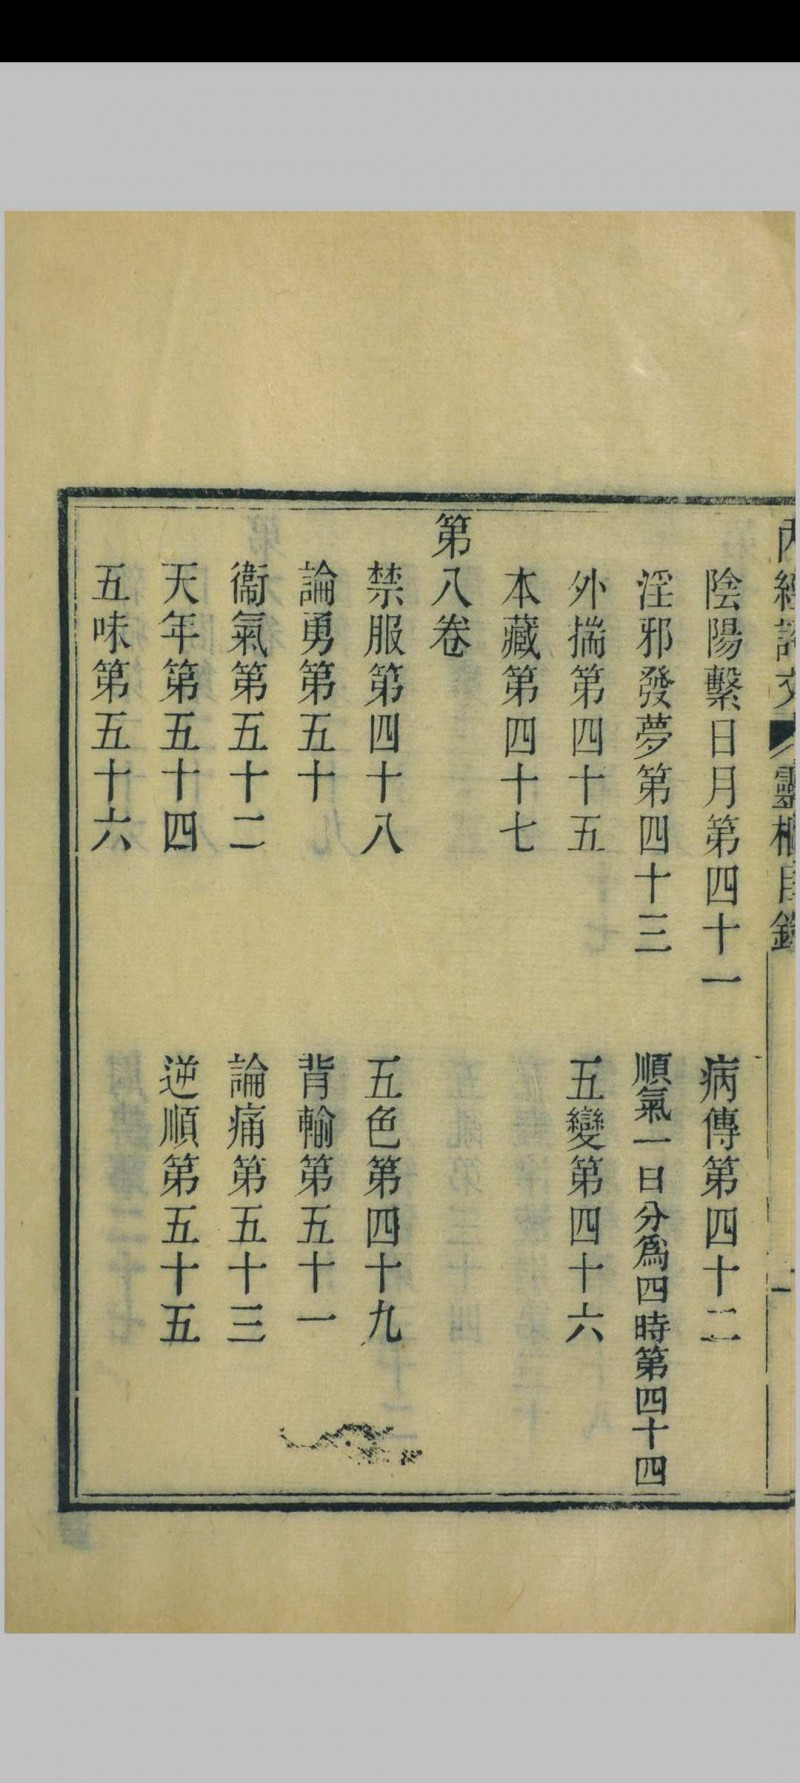 陰陽繫日月第四十一
病傳第四十二
淫邪發夢第四十三
順氣一日分爲四時第四十四
外揣第四十五
五變第四十六
本藏第四十七
第八卷
禁服第四十八
五色第四十九
論勇第五十
背輸第五十一
衞氣第五十二
論痛第五十三
天年第五十四
逆順第五十五
五味第五十六